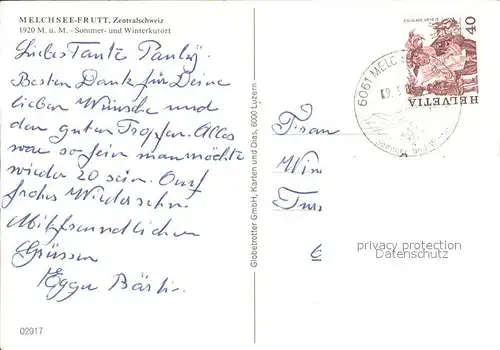 MELCHSEE-FRUTT, Zentralschweiz
1920 M. ü. M. - Sommer- und Winterkurort
Liebes Tante Pauly
Besten Dank für Deine
lieben Wünsche und
den guten Tropfen. Alles
war so fein man möchte
wieder 20 sein. Auf
frohes Wiedersehn.
Mit freundlichen
Grüssen
Bärti
02917
Globetrotter GmbH, Karten und Dias, 6000 Luzern
ESCALADE GENÈVE
40
HELVETIA
6061 MELC
Sommer und Win
Frau
privacy protection
Datenschutz